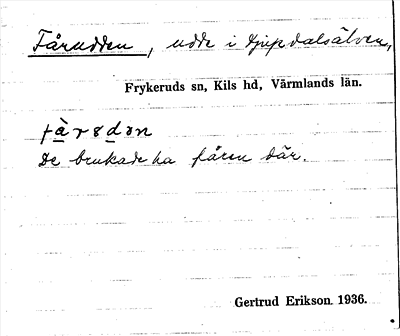 Fårudden, udde i Djupdalsälven,
Frykeruds sn, Kils hd, Värmlands län.
De brukade ha fåren där.
Gertrud Erikson. 1936.